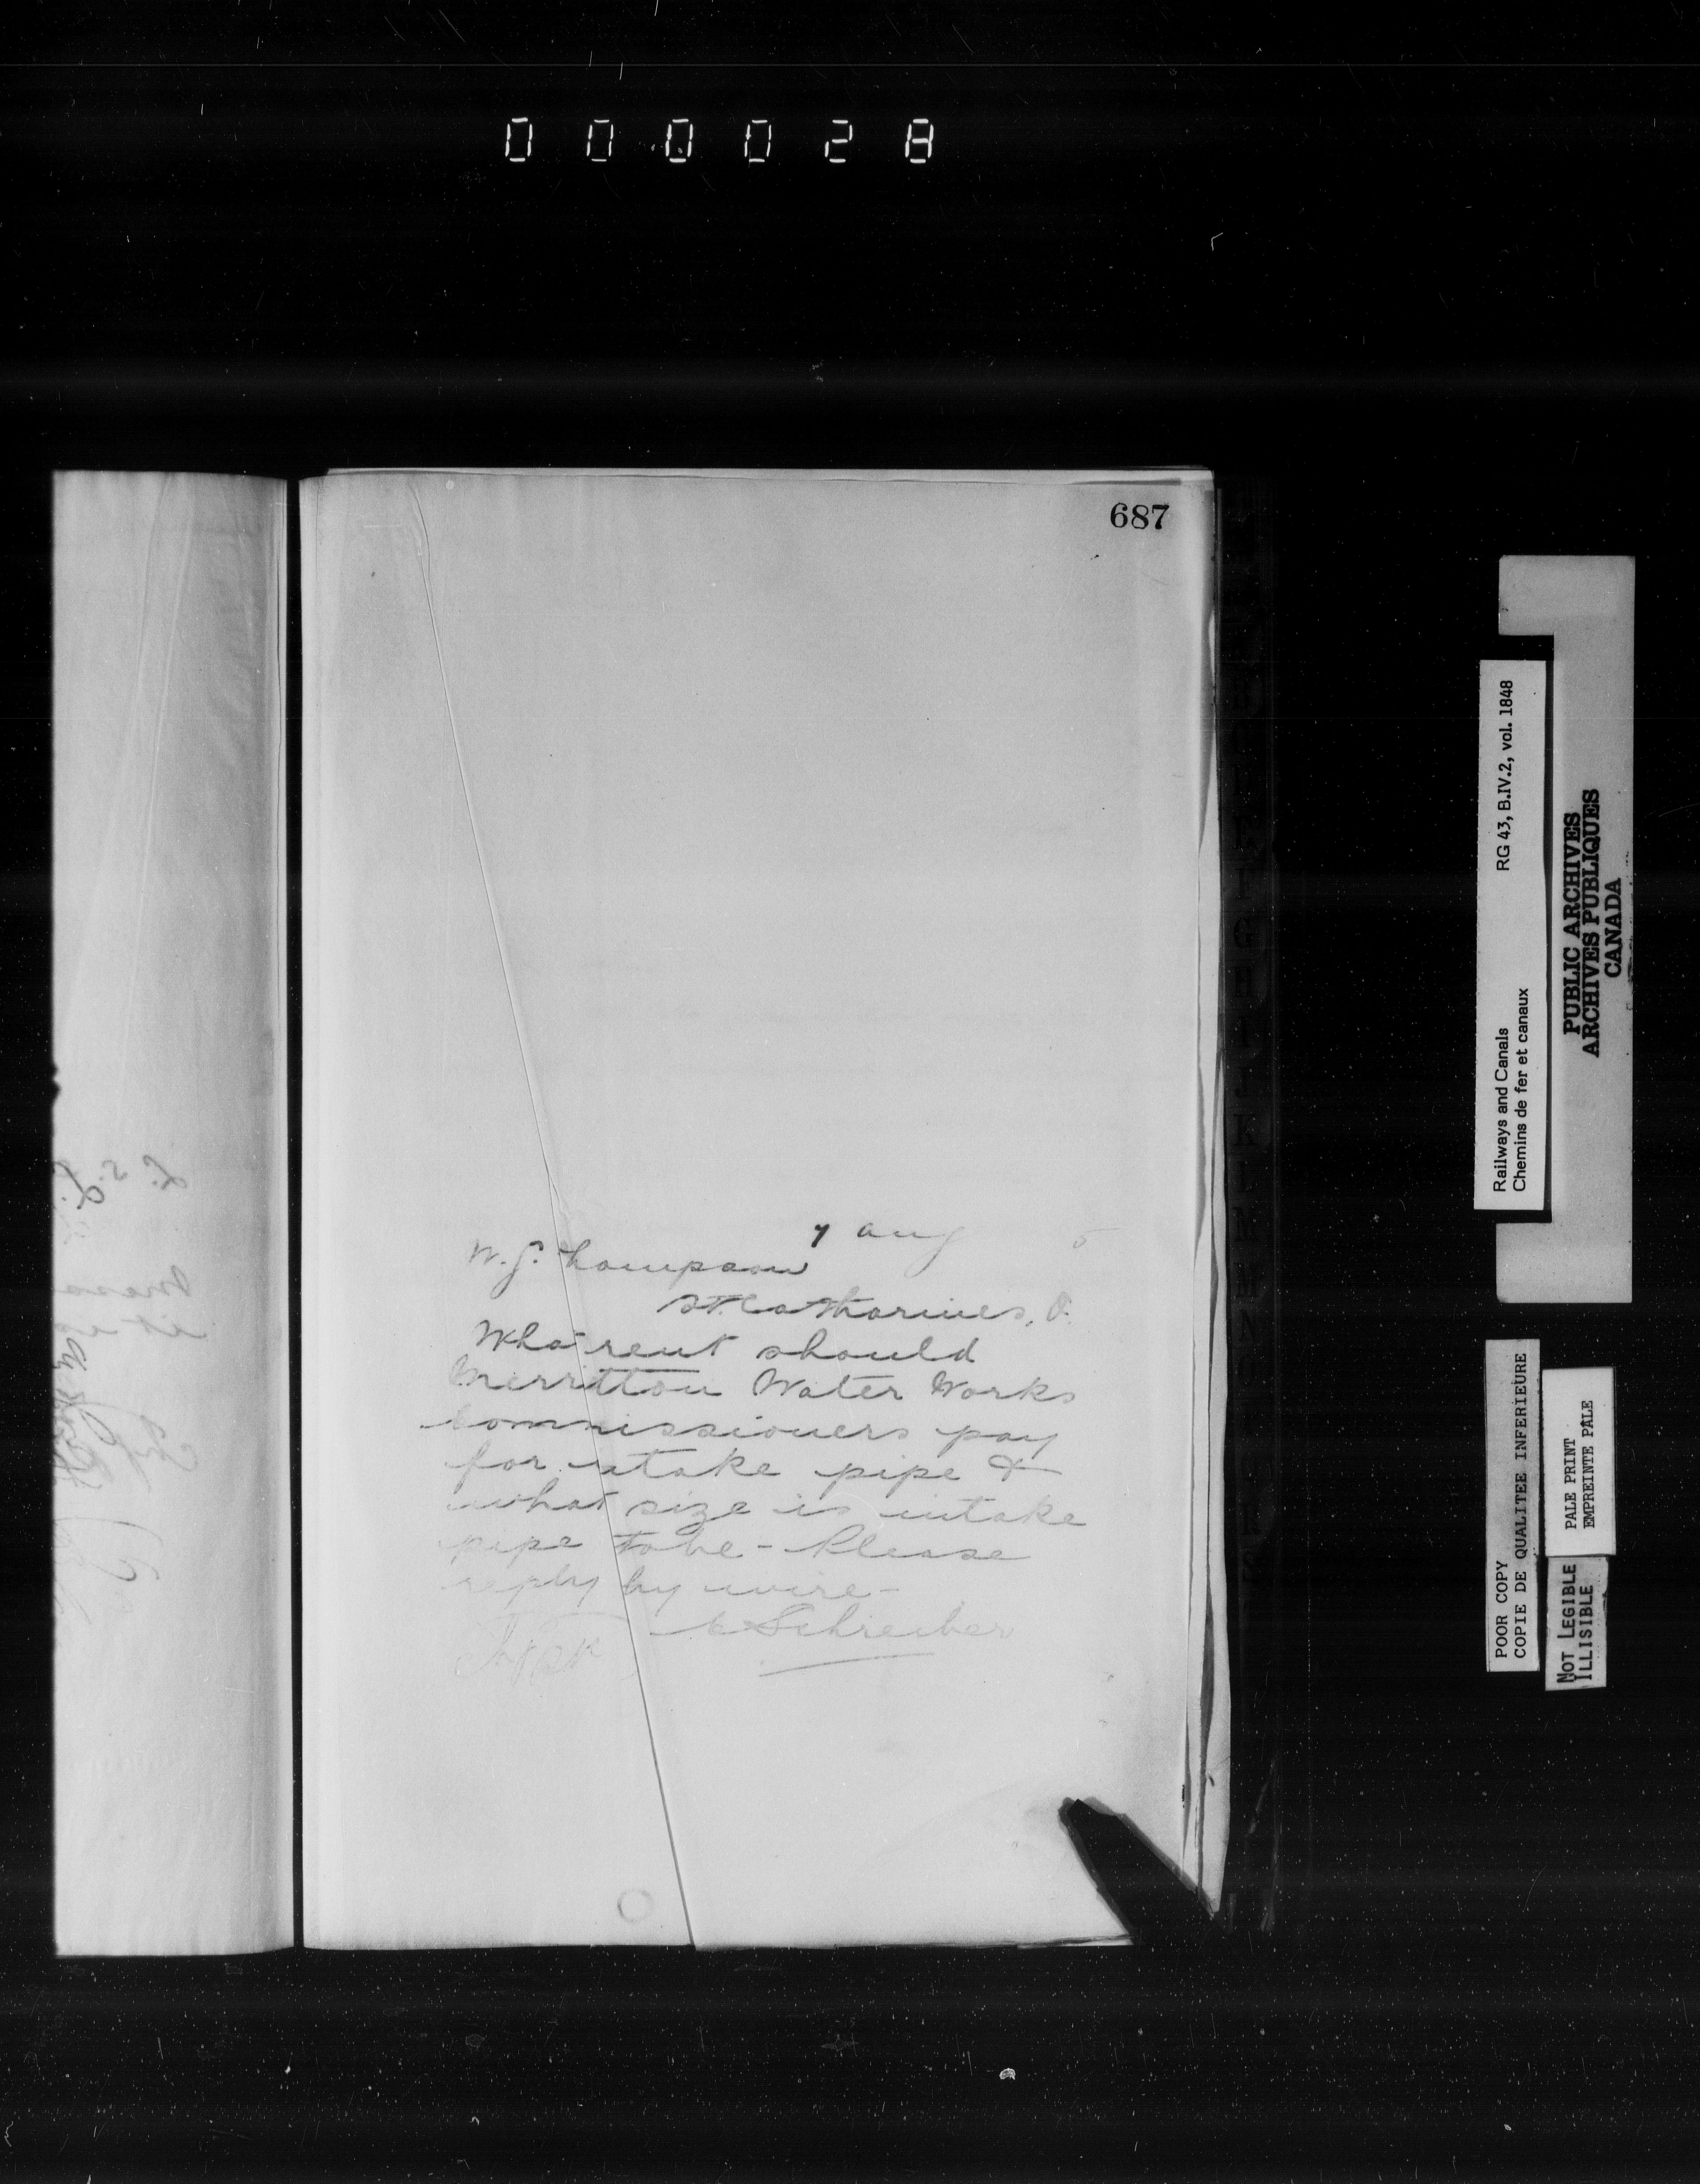 000028
687
7 Aug 5
W. G. Thompson
St. Catharines, O.
What rent should
Merritton Water Works
Commissioners pay
for intake pipe &
what size is intake
pipe to be - Please
reply by wire -
C Schreiber
Railways and Canals RG 43, B.IV.2, vol. 1848
Chemins de fer et canaux
PUBLIC ARCHIVES
ARCHIVES PUBLIQUES
CANADA
POOR COPY
COPIE DE QUALITEE INFERIEURE
PALE PRINT
EMPREINTE PÂLE
NOT LEGIBLE
ILLISIBLE